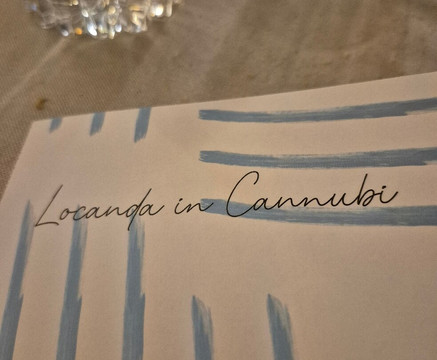 Locanda in Cannubi